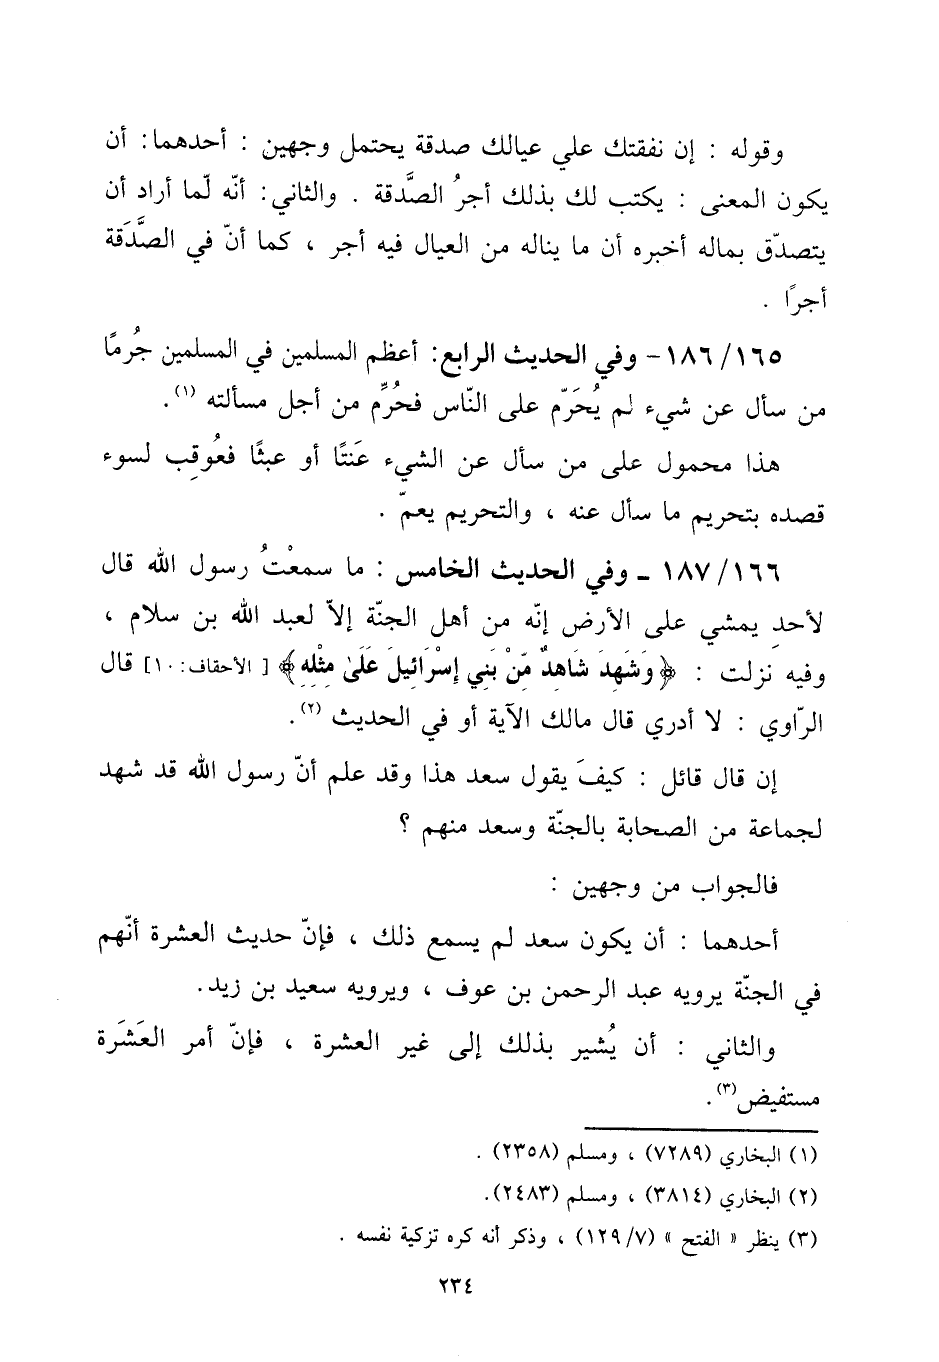 وقوله : إن نفقتك علي عيالك صدقة يحتمل وجهين : أحدهما: أن
يكون المعنى : يكتب لك بذلك أجرُ الصَّدقة . والثاني: أنه لّما أراد أن
يتصدّق بماله أخبره أن ما يناله من العيال فيه أجر ، كما أنّ في الصَّدَقة
أجرًا .
١٨٦/١٦٥- وفي الحديث الرابع: أعظم المسلمين في المسلمين جُرمًا
من سأل عن شيء لم يُحَرّم على النّاس فحُرِّم من أجل مسألته (١).
هذا محمول على من سأل عن الشيء عَنتًا أو عبثًا فعُوقِب لسوء
قصده بتحريم ما سأل عنه ، والتحريم يعمّ .
١٨٧/١٦٦ ـ وفي الحديث الخامس : ما سمعْتُ رسول الله قال
لأحدِ يمشي على الأرض إنّه من أهل الجنّة إلاّ لعبد الله بن سلام ،
وفيه نزلت : ﴿وَشَهِدَ شَاهِدٌ مّنْ بَني إِسْرَائِيلَ عَلَىٰ مِثْلِهِ﴾ [ الأحقاف: ١٠] قال
الرّاوي : لا أدري قال مالك الآية أو في الحديث (٢).
إن قال قائل : كيفَ يقول سعد هذا وقد علم أنّ رسول الله قد شهد
لجماعة من الصحابة بالجنّة وسعد منهم ؟
فالجواب من وجهين :
أحدهما : أن يكون سعد لم يسمع ذلك ، فإنّ حديث العشرة أنّهم
في الجنّة يرويه عبد الرحمن بن عوف ، ويرويه سعيد بن زيد.
والثاني : أن يُشير بذلك إلى غير العشرة ، فإنّ أمر العَشَرة
مستفيض(٣).
(١) البخاري (٧٢٨٩) ، ومسلم (٢٣٥٨) .
(٢) البخاري (٣٨١٤) ، ومسلم (٢٤٨٣).
(٣) ينظر « الفتح » (١٢٩/٧) ، وذكر أنه كره تزكية نفسه .
٢٣٤